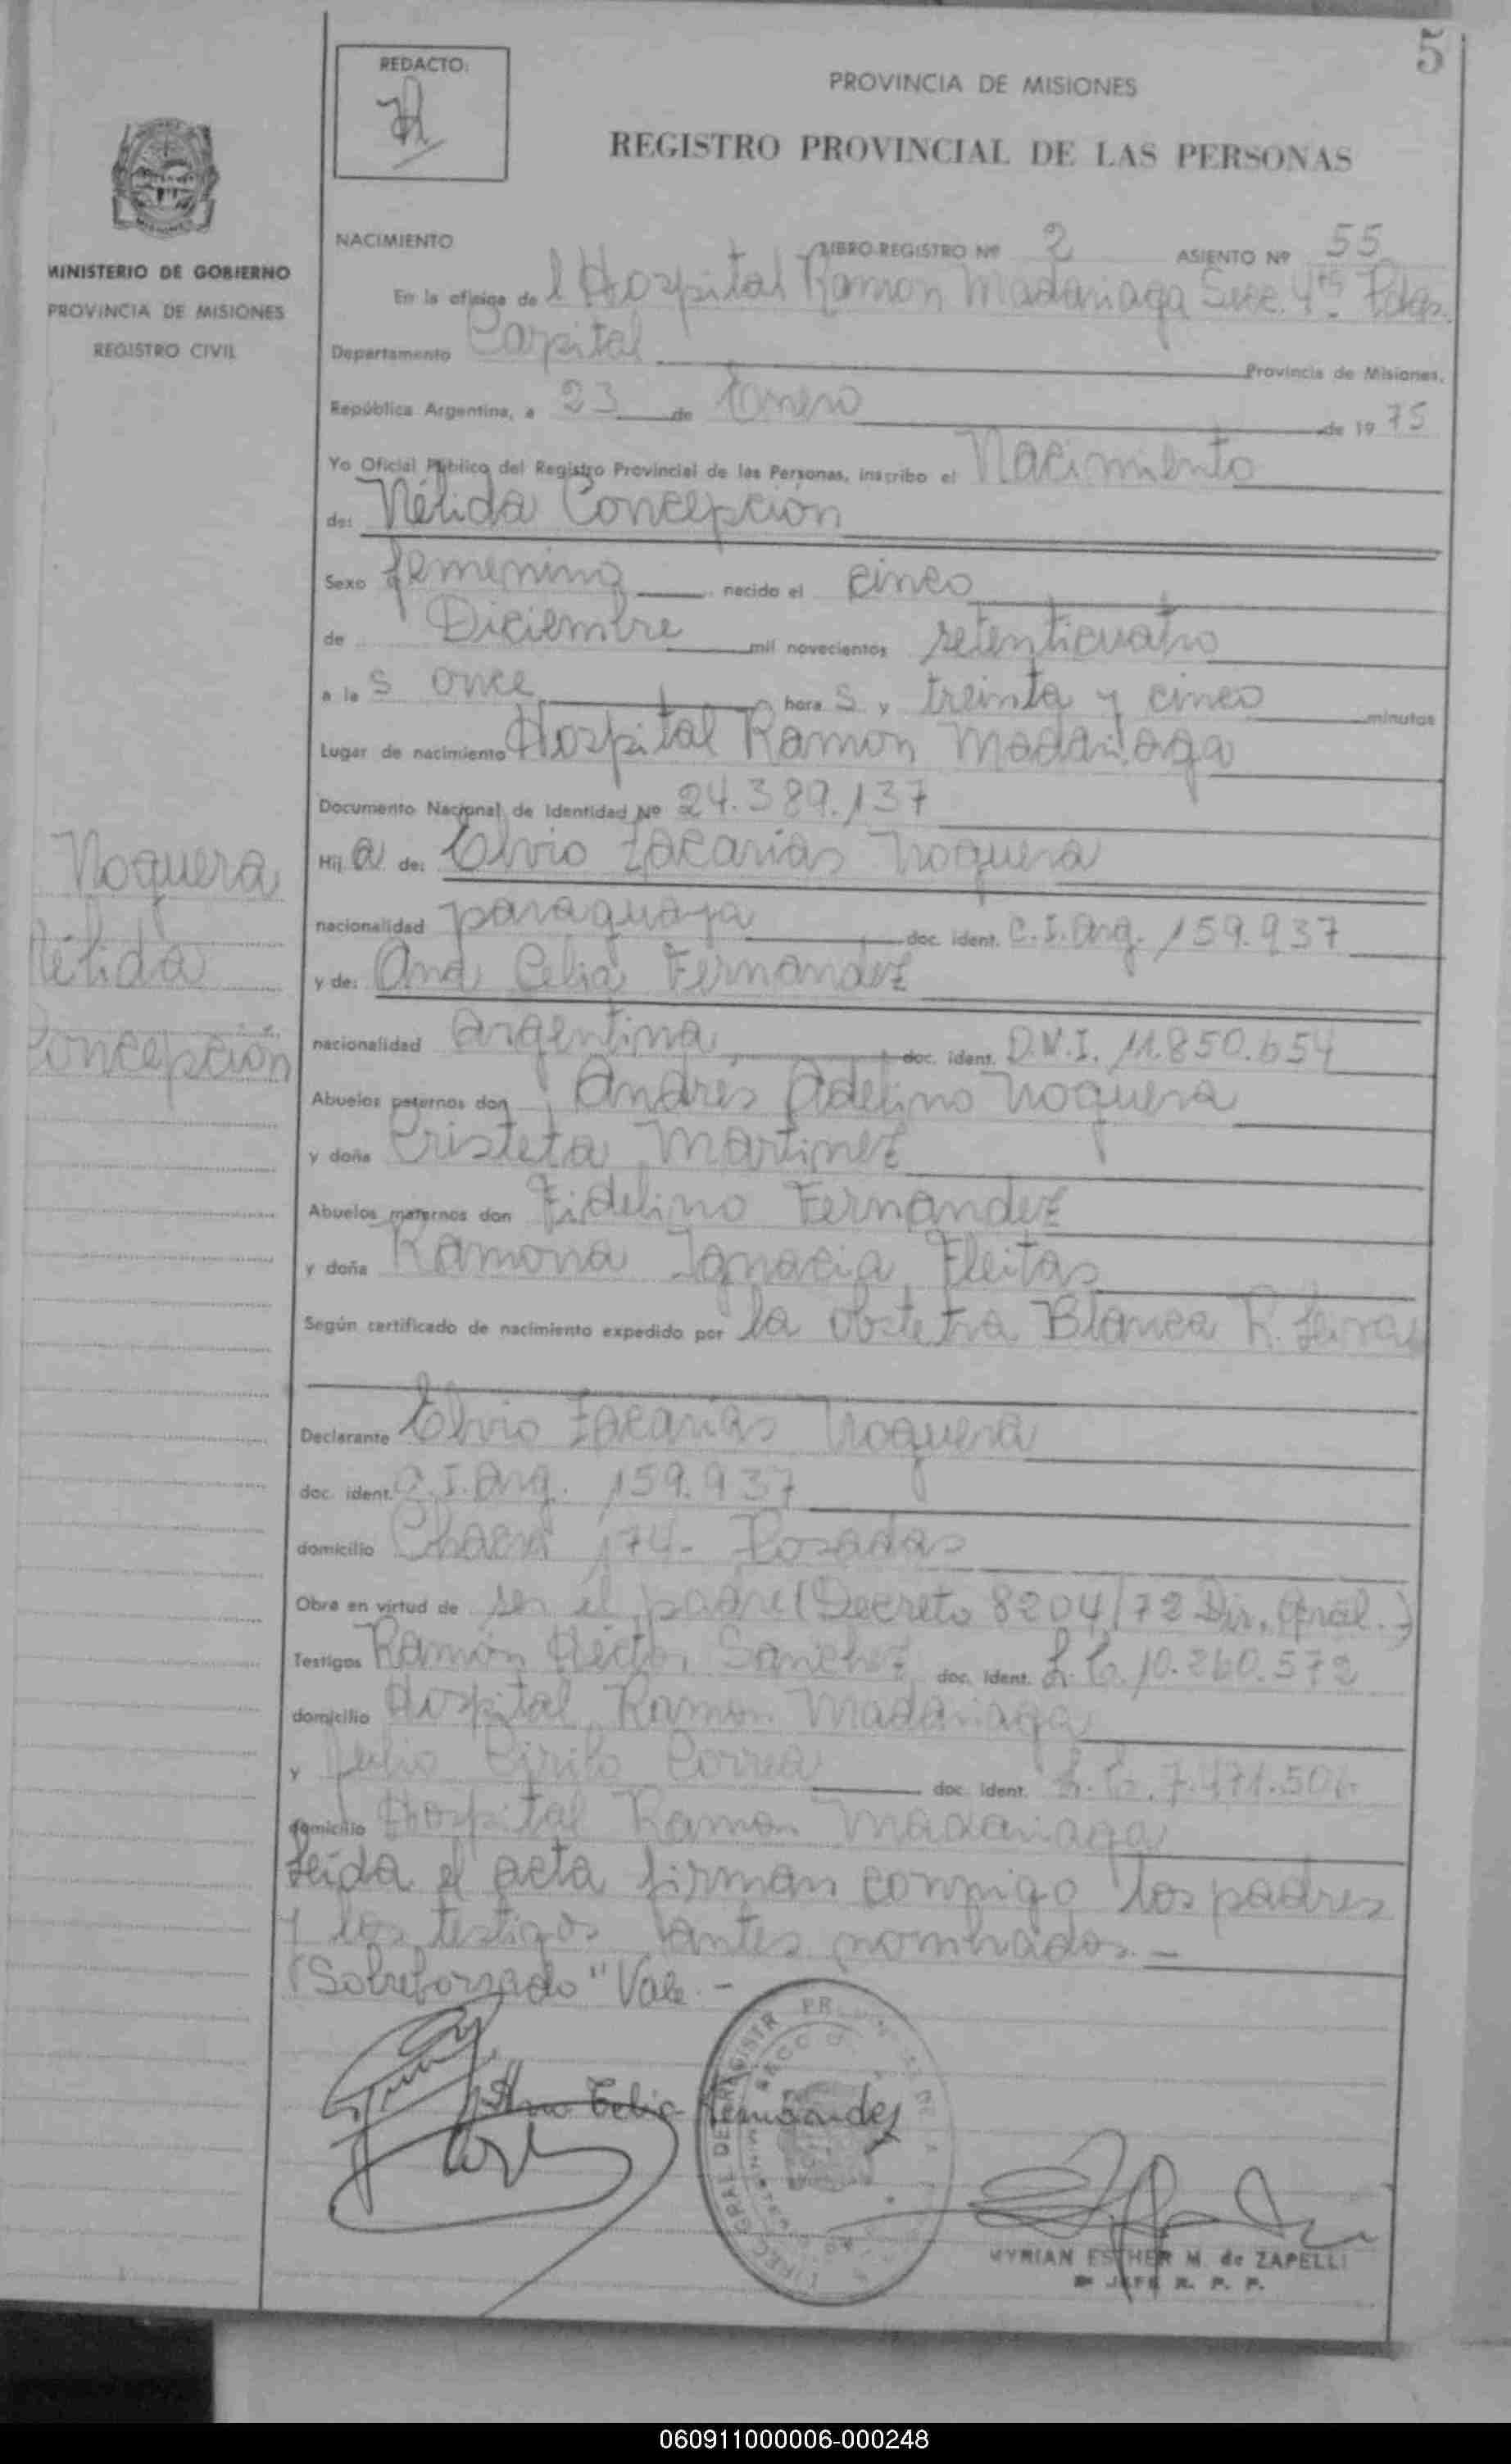 5
REDACTO:
PROVINCIA DE MISIONES
REGISTRO PROVINCIAL DE LAS PERSONAS
MINISTERIO DE GOBIERNO
PROVINCIA DE MISIONES
REGISTRO CIVIL
NACIMIENTO LIBRO-REGISTRO Nº 2 ASIENTO Nº 55
En la oficina de l Hospital Ramon Madariaga Secc. 4ta Pdas.
Departamento Capital Provincia de Misiones,
República Argentina, a 23 de Enero de 19 75
Yo Oficial Público del Registro Provincial de las Personas, inscribo el Nacimiento
de: Nélida Concepción
Sexo femenino nacido el cinco
de Diciembre mil novecientos setenticuatro
a la s once hora s y treinta y cinco minutos
Lugar de nacimiento Hospital Ramon Madariaga
Documento Nacional de Identidad Nº 24.389.137
Noguera
Nélida
Concepción
Hij a de: Elvio Zacarias Noguera
nacionalidad paraguaya doc. ident. C.I. Arg. 159.937
y de: Ana Celia Fernandez
nacionalidad Argentina doc. ident. D.N.I. 11.850.654
Abuelos paternos don Andrés Adelino Noguera
y doña Cristeta Martinez
Abuelos maternos don Fidelino Fernandez
y doña Ramona Ignacia Fleitas
Según certificado de nacimiento expedido por la obstetra Blanca R.
Declarante Elvio Zacarias Noguera
doc. ident. C.I. Arg. 159.937
domicilio Chacra 174- Posadas
Obra en virtud de ser el padre (Decreto 8204/72 Dir. Gral.)
Testigos Ramón Héctor Sanchez doc. ident. L.E. 10.260.572
domicilio Hospital Ramon Madariaga
y Julio Cirilo Correa doc. ident. L.E. 7.471.506
domicilio Hospital Ramon Madariaga
Leida el acta firman conmigo los padres
y los testigos antes nombrados.-
"Sobreborrado" Vale.-
Ana Celia Fernandez
MYRIAN ESTHER M. de ZAPELLI
JEFE R. P. P.
060911000006-000248